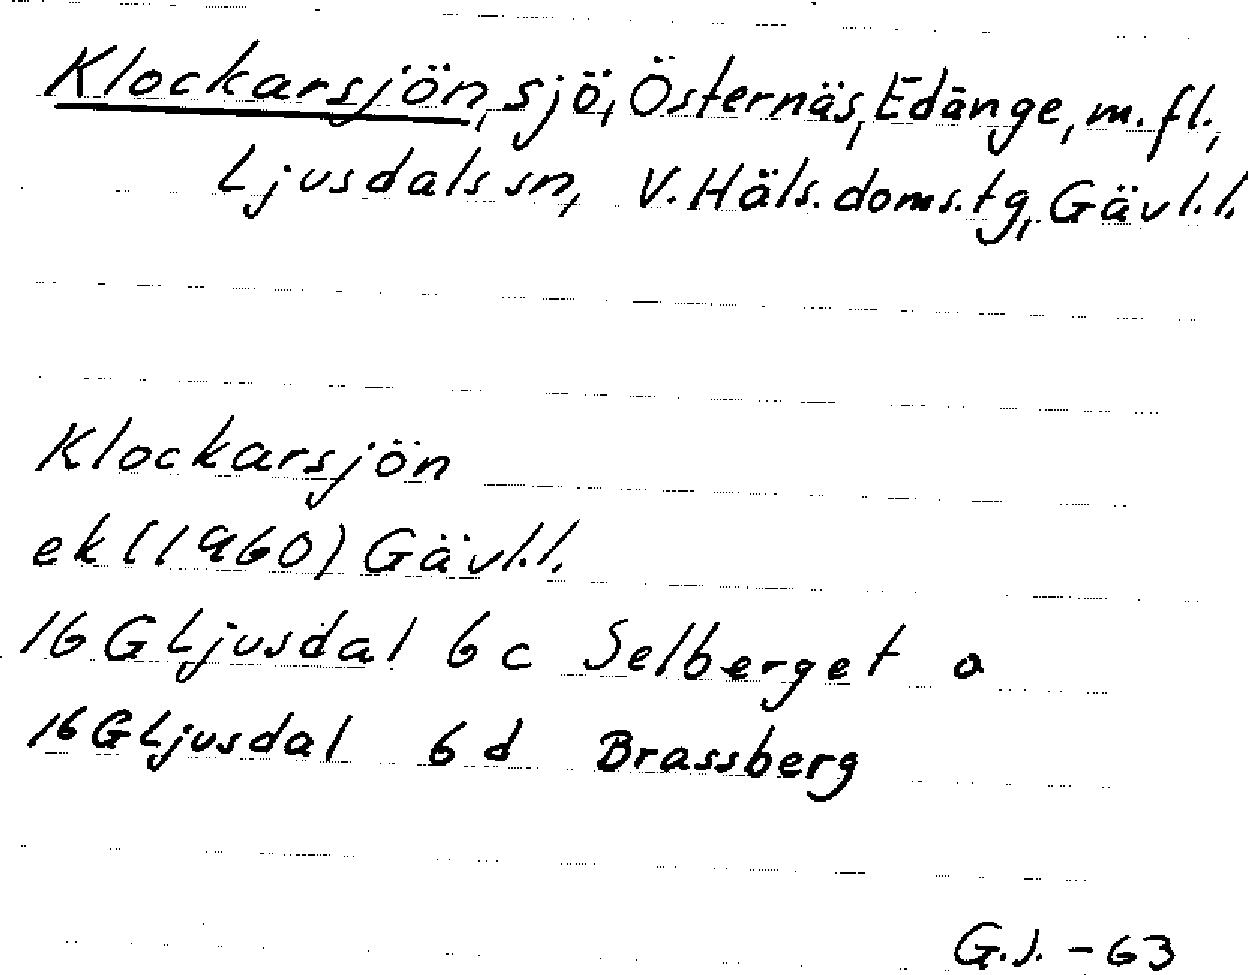 Klockarsjön, sjö, Östernäs, Edänge, m.fl.,
Ljusdals sn, V. Häls. doms.tg, Gävl.l.
Klockarsjön
ek (1960) Gävl.l.
16 G Ljusdal 6 c Selberget o
16 G Ljusdal 6 d Brassberg
G.J. - 63